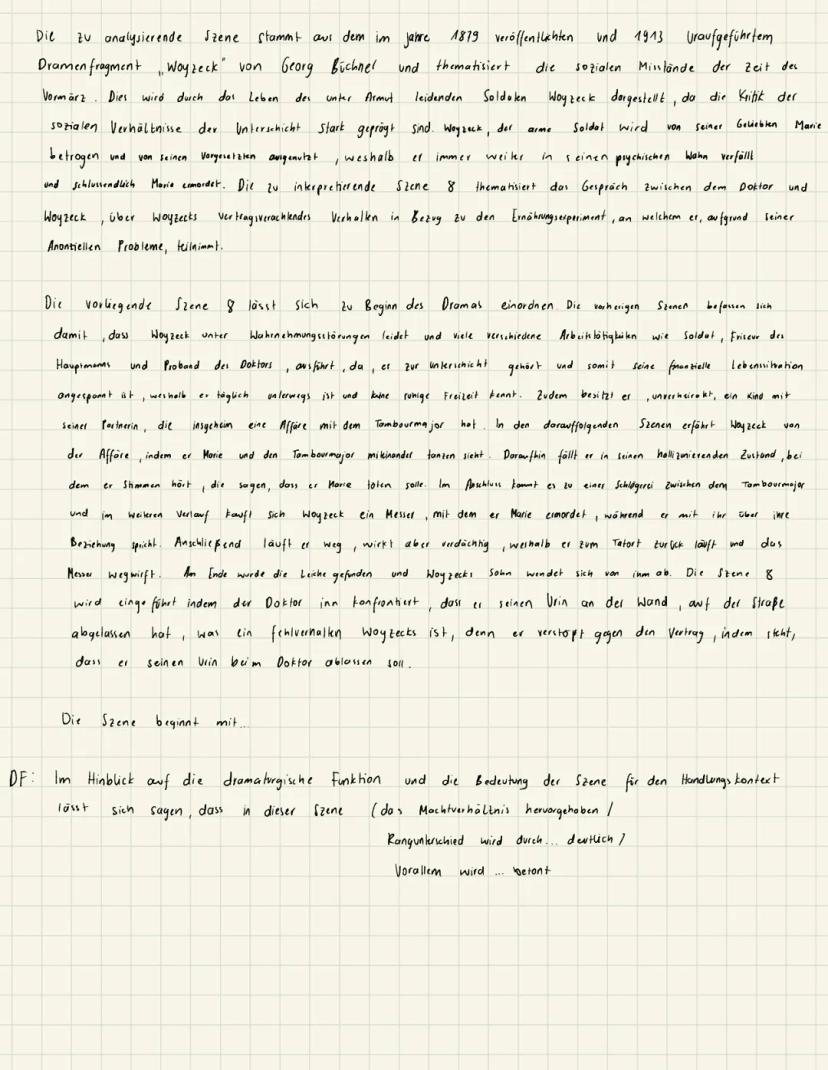 Die zu analysierende Szene stammt aus dem im Jahre 1879 veröffentlichten und 1913 Uraufgeführtem
Dramenfragment „Woyzeck" von Georg Büchner und thematisiert die sozialen Missstände der Zeit des
Vormärz. Dies wird durch das Leben des unter Armut leidenden Soldaten Woyzeck dargestellt, da die Kritik der
sozialen Verhältnisse der Unterschicht stark geprägt sind. Woyzeck, der arme Soldat wird von seiner Geliebten Marie
betrogen und von seinen Vorgesetzten ausgenutzt, weshalb er immer weiter in seinen psychischen Wahn verfällt
und schlussendlich Marie ermordet. Die zu interpretierende Szene 8 thematisiert das Gespräch zwischen dem Doktor und
Woyzeck, über Woyzecks vertragsverachtendes Verhalten in Bezug zu den Ernährungsexperiment, an welchem er, aufgrund seiner
finanziellen Probleme, teilnimmt.
Die vorliegende Szene 8 lässt sich zu Beginn des Dramas einordnen. Die vorherigen Szenen befassen sich
damit, dass Woyzeck unter Wahrnehmungsstörungen leidet und viele verschiedene Arbeitstätigkeiten wie Soldat, Friseur des
Hauptmanns und Proband des Doktors, ausführt, da, er zur unterschicht gehört und somit seine finanzielle Lebenssituation
angespannt ist, weshalb er täglich unterwegs ist und keine ruhige Freizeit kennt. Zudem besitzt er, unverheiratet, ein Kind mit
seiner Partnerin, die insgeheim eine Affäre mit dem Tambourmajor hat. In den darauffolgenden Szenen erfährt Woyzeck von
der Affäre, indem er Marie und den Tambourmajor miteinander tanzen sieht. Daraufhin fällt er in seinen halluzinierenden Zustand, bei
dem er Stimmen hört, die sagen, dass er Marie töten solle. Im Abschluss kommt es zu einer Schlägerei zwischen dem Tambourmajor
und im weiteren Verlauf kauft sich Woyzeck ein Messer, mit dem er Marie ermordet, während er mit ihr über ihre
Beziehung spricht. Anschließend läuft er weg, wirkt aber verdächtig, weshalb er zum Tatort zurück läuft und das
Messer wegwirft. Am Ende wurde die Leiche gefunden und Woyzecks Sohn wendet sich von ihm ab. Die Szene 8
wird eingeführt indem der Doktor ihn konfrontiert, dass er seinen Urin an der Wand, auf der Straße
abgelassen hat, was ein fehlverhalten Woyzecks ist, denn er verstößt gegen den Vertrag, indem steht,
dass er seinen Urin beim Doktor ablassen soll.
Die Szene beginnt mit...
DF: Im Hinblick auf die dramaturgische Funktion und die Bedeutung der Szene für den Handlungskontext
lässt sich sagen, dass in dieser Szene (das Machtverhältnis hervorgehoben /
Rangunterschied wird durch... deutlich /
Vorallem wird ... betont